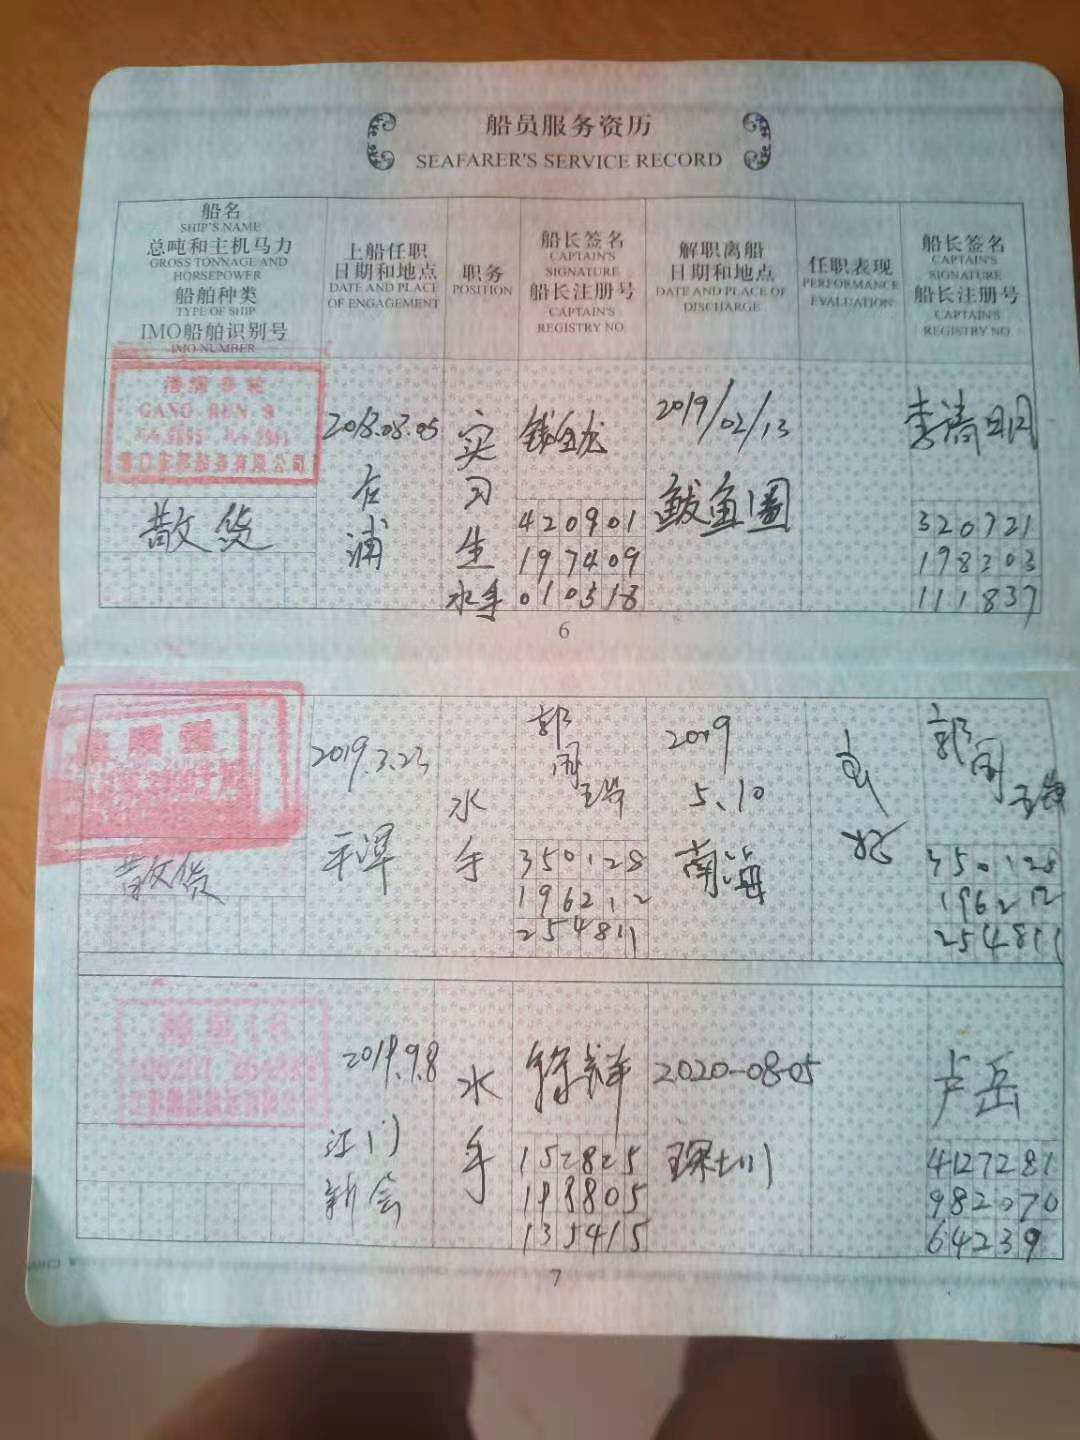 船员服务资历
SEAFARER'S SERVICE RECORD
船名
SHIP'S NAME
总吨和主机马力
GROSS TONNAGE AND
HORSEPOWER
船舶种类
TYPE OF SHIP
IMO船舶识别号
IMO NUMBER
上船任职
日期和地点
DATE AND PLACE
OF ENGAGEMENT
职务
POSITION
船长签名
CAPTAIN'S
SIGNATURE
船长注册号
CAPTAIN'S
REGISTRY NO.
解职离船
日期和地点
DATE AND PLACE OF
DISCHARGE
任职表现
PERFORMANCE
EVALUATION
船长签名
CAPTAIN'S
SIGNATURE
船长注册号
CAPTAIN'S
REGISTRY NO.
GANG RUN 9
散货
2018.08.05
实
习
生
水手
420901
197409
010518
2019/02/13
鲅鱼圈
李涛明
320721
198303
111837
6
散货
2019.3.23
平潭
水
手
350128
196212
254811
2019
5.10
南海
350128
196212
254811
2019.9.8
江门
新会
水
手
152825
198805
135415
2020-08-05
深圳
卢岳
4127281
982070
64239
7